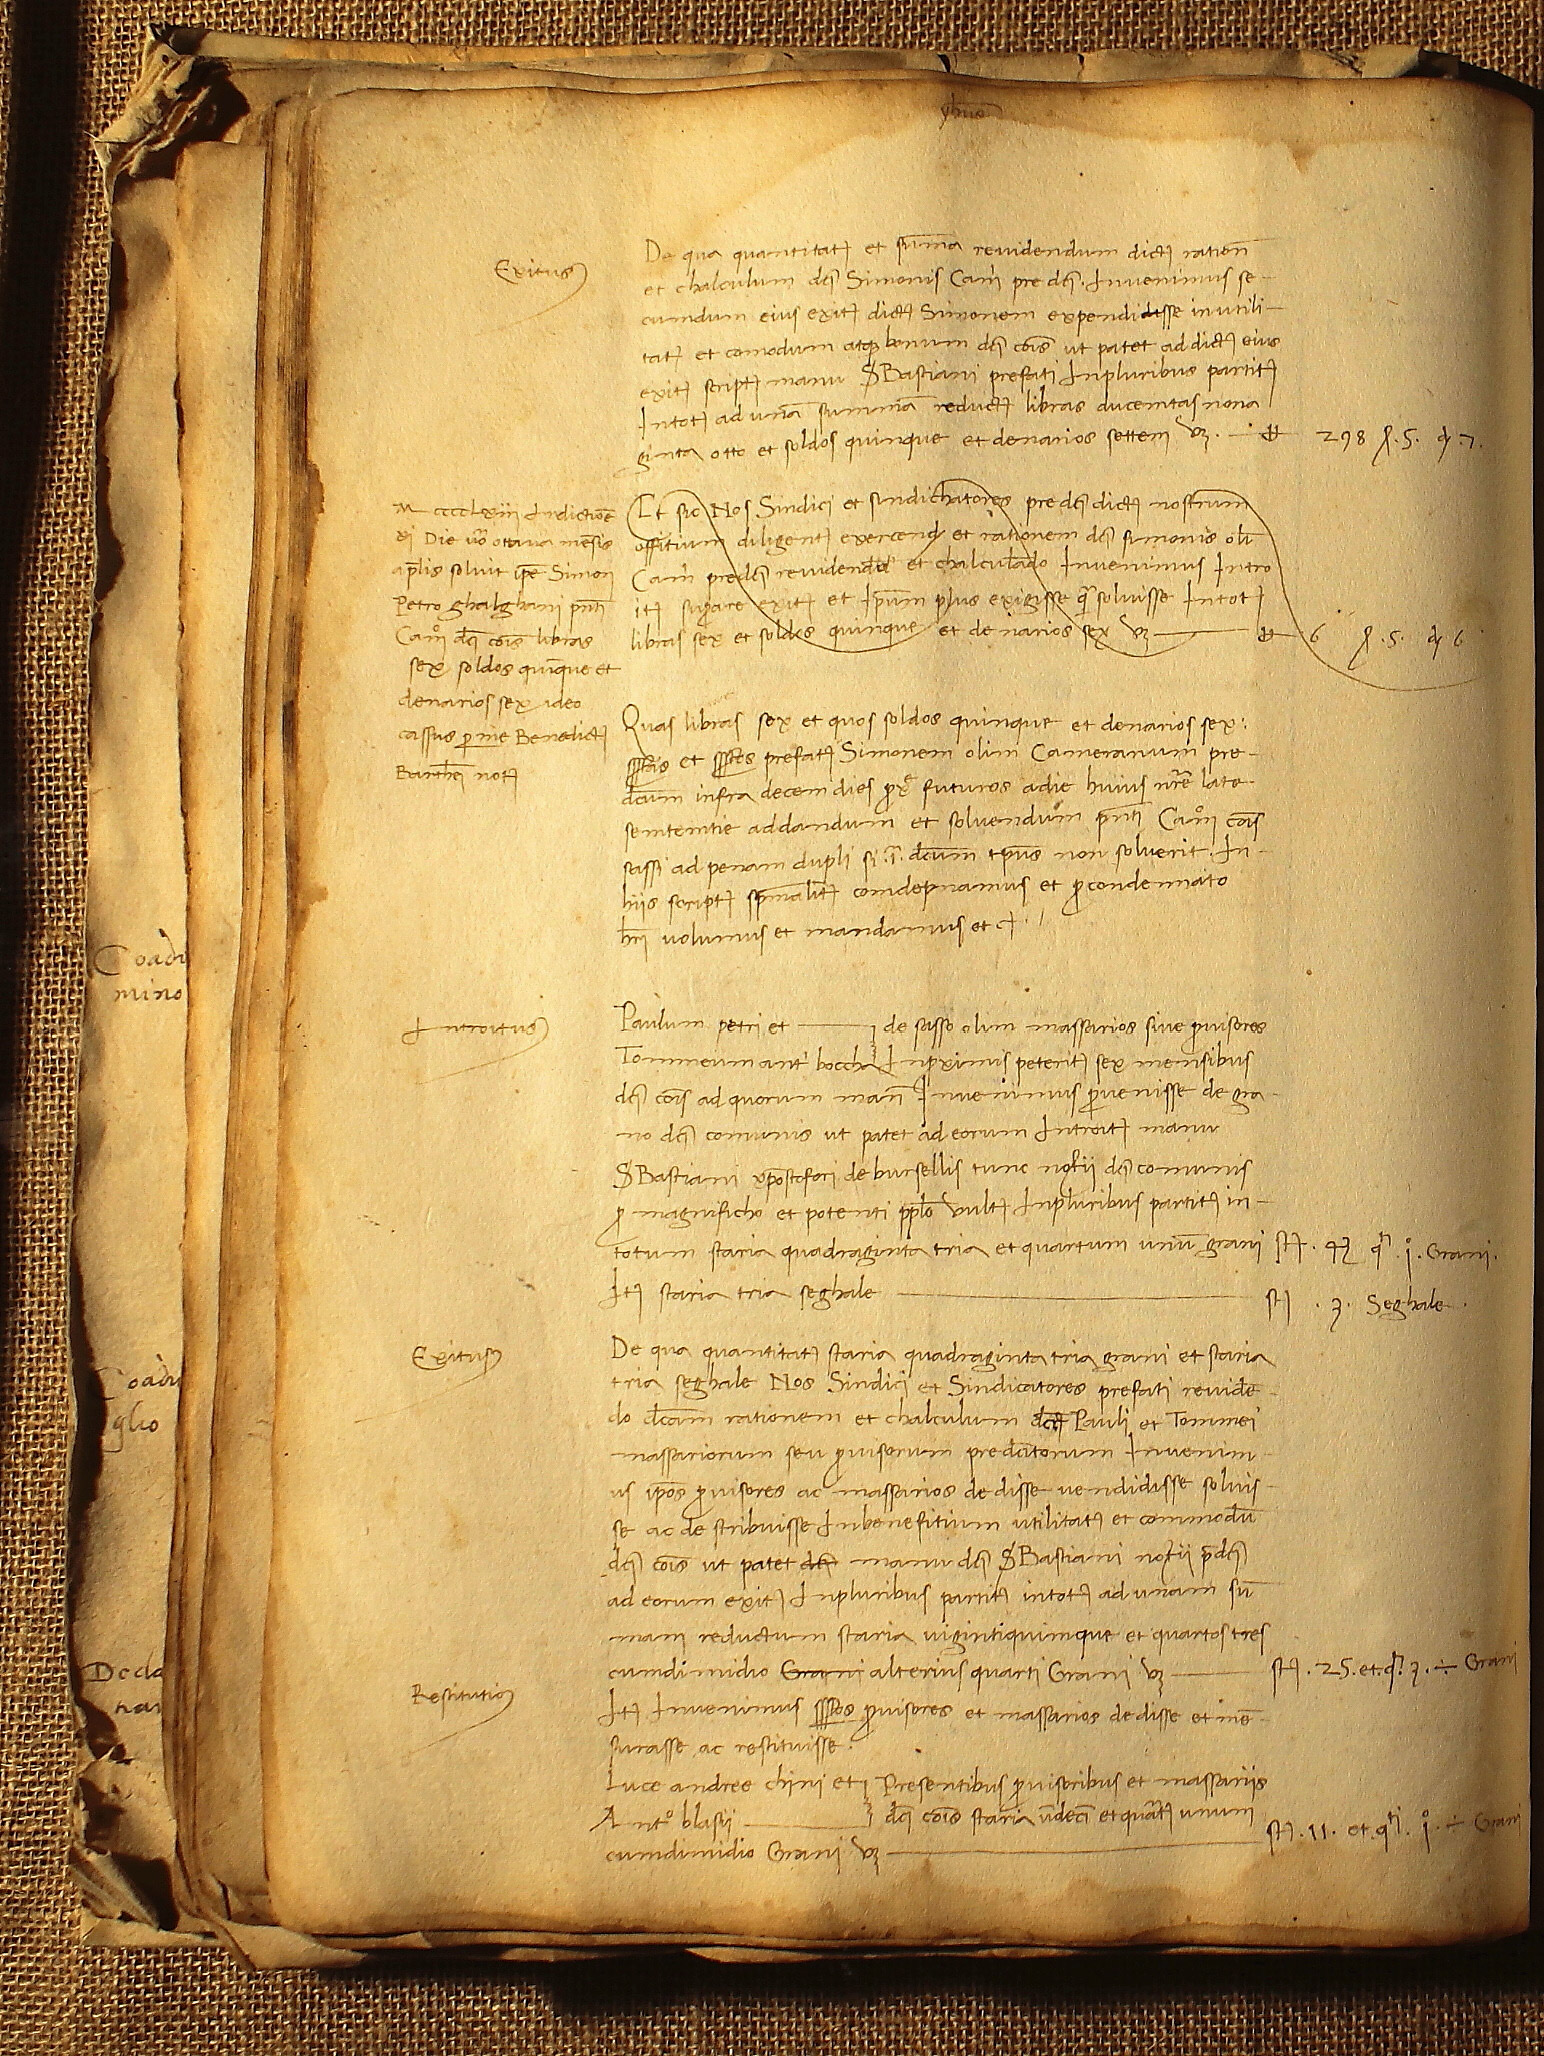 yhus
Exitus
De qua quantitatę et sum̄a reuidendum dictę ration̄
et chalculum dcī Simonis Cam̄ pre dcī. Inuenimus se-
cumdum eius exitę dictę Simonem expendidisse in utili-
tatę et comodum atqꝫ bonum dcī cōis ut patet ad dictę eius
exitę scriptę manu S Bastiani prefati Inpluribus partitę
Intotę ad unā summā reductę libras ducemtas nona
ginta otto et soldos quinque et denarios settem vꝫ. 298 .5. 7.
M cccclxiii Indictiōe
xi Die vō ottaua mēsis
ap̄lis soluit ip̄e Simon
Petro ghalghani pn̄ti
Camͦ dcī cōis libras
sex soldos quinque et
denarios sex ideo
cassus per me Benedictę
Barth̄ei notę
Et sic Nos Sindici et sindichatores predcī dictę nostrum
offitium diligentę exercendo et rationem dcī simonis olī
Cam̄ predcī reuidendo et chalculādo Inuenimus Intro
itę supare exitę et Ip̄um plus exigisse qͣ soluisse Intotę
libras sex et soldos quinque et denarios sex vꝫ 6 .5. 6
Quas libras sex et quos soldos quinque et denarios sex:
et prefatę Simonem olim Camerarium pre-
dcūm infra decem dies prox̄ futuros adie huius nrē late
semtemtie addandum et soluendum pn̄ti Camͦ cōis
sassi ad penam dupli si ī dcūm tp̄us non soluerit. In-
hiis scriptę sp̄nalitę comdepnamus et ꝓcondennato
hrī uolumus et mandamus et c
Introitus
Paulum petri et de sasso olim massarios siue ꝓuisores
Tommeum ant bocche Inproximis peteritę sex mensibus
dcī cōis ad quorum man̄ Inuenimus ꝓuenisse de gra
no dcī comunis ut patet ad eorum Introitę manu
S Bastiani xpostofori de bursellis tunc notii dcī comunis
ꝓ magnificho et potenti pplō vultę Inpluribus partitę in-
totum staria quadraginta tria et quartum unū grani stę . 43 qͬ . i . Grani.
Itę staria tria seghale stę . 3 . Seghale.
Exitus
De qua quantitatę staria quadraginta tria grani et staria
tria seghale Nos Sindici et Sindicatores prefati reuidē-
do dcām rationem et chalculum Pauli et Tommei
massariorum seu ꝓuisorum predcītorum Inuenim-
us ip̄os ꝓuisores ac massarios dedisse uendidisse soluis-
se ac de stribuisse Inbenefitium utilitatę et commodū
dcī cōis ut patet dcī manu dcī S Bastiani notii p̄dcī
ad eorum exitę Inpluribus partitę intotę ad unam sū
mam reductum staria uigintiquimque et quartos tres
cumdimidio Grani alterius quarti Grani vꝫ stę . 25 . et . qͬ . 3 . ÷ Grani
Restitutio
Itę Inuenimus ꝓuisores et massarios dedisse et mē-
surasse ac restituisse.
Luce andree chini et Presentibus ꝓuisoribus et massariis
Antͦ blasii dcī cōis staria ūdeci et quartę unum
cumdimidio Grani vꝫ stę . 11 . et . qͬ . i . ÷ Grani
Coadi
mino
Coadi
glio